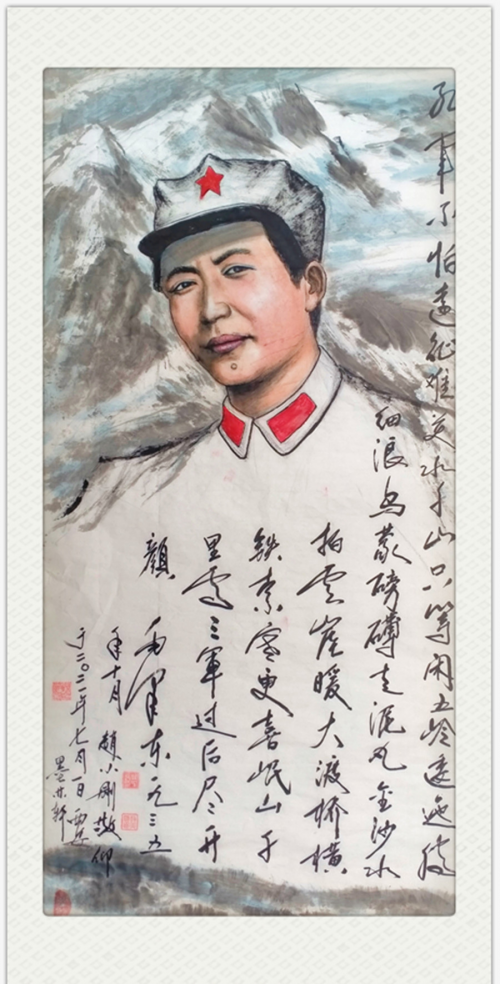 红军不怕远征难万水千山只等闲五岭逶迤腾
细浪乌蒙磅礴走泥丸金沙水
拍云崖暖大渡桥横
铁索寒更喜岷山千
里雪三軍过后尽开
顏 毛泽东一九三五
年十月 趙小刚敬仰
于二〇二一年七月一日